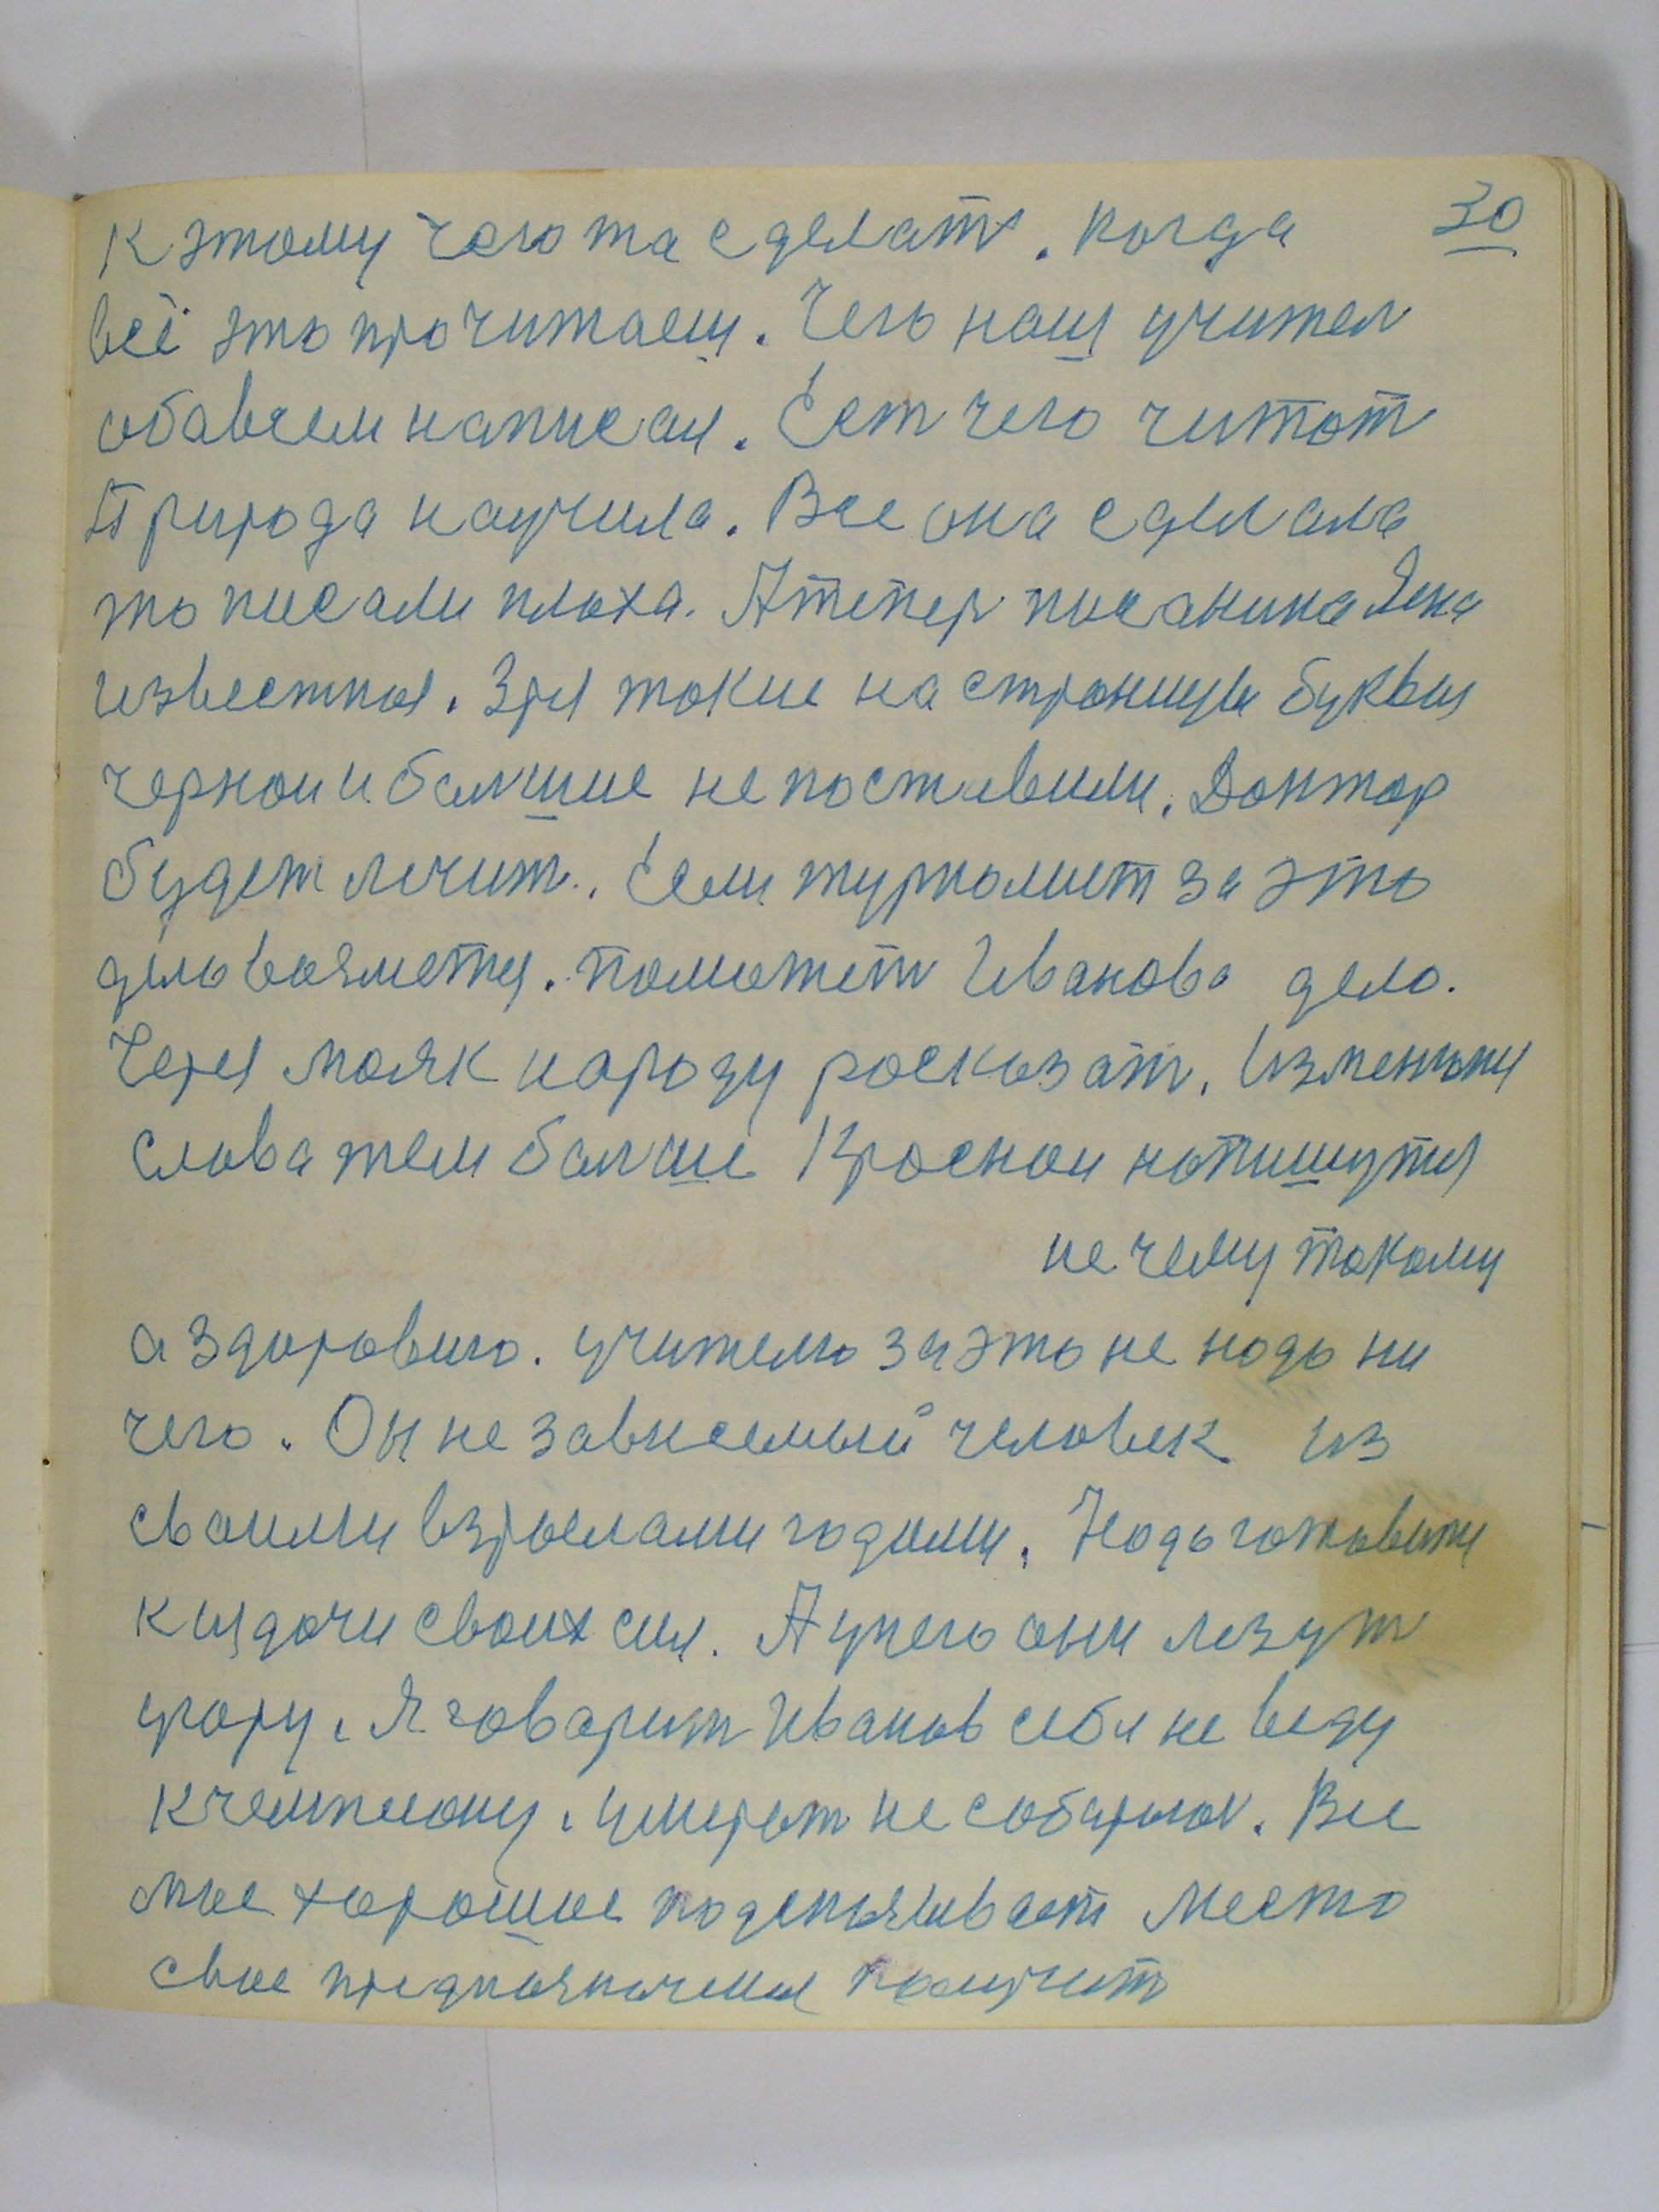 30
к этому чего та сделат. Когда
всё это прочитаеш. Чего наш учител
обавсем написал. Ест чего читат
Природа научила. Все она сделала
то писали плоха. А тепер писанина Яена
известная. Зря такие на странице буквы
черной и балшие не поставили. Доктор
будет лечит. Если журналист за это
дело возметця. поможет Иванова дело.
Через маяк народу росказат. Изменими
слова тем балше Красной напишутця
не чему такому
а здоровию. учителю за это не надо ни
чего. Он не зависемый человек из
своими взрослами годами. Надо готовитця
к издачи своих сил. А у него они лезут
угору. Я говарит Иванов себя не веду
к чемпиону. умерат не собираюс. Все
мое хорошое подсказывает место
свое предназначения получит